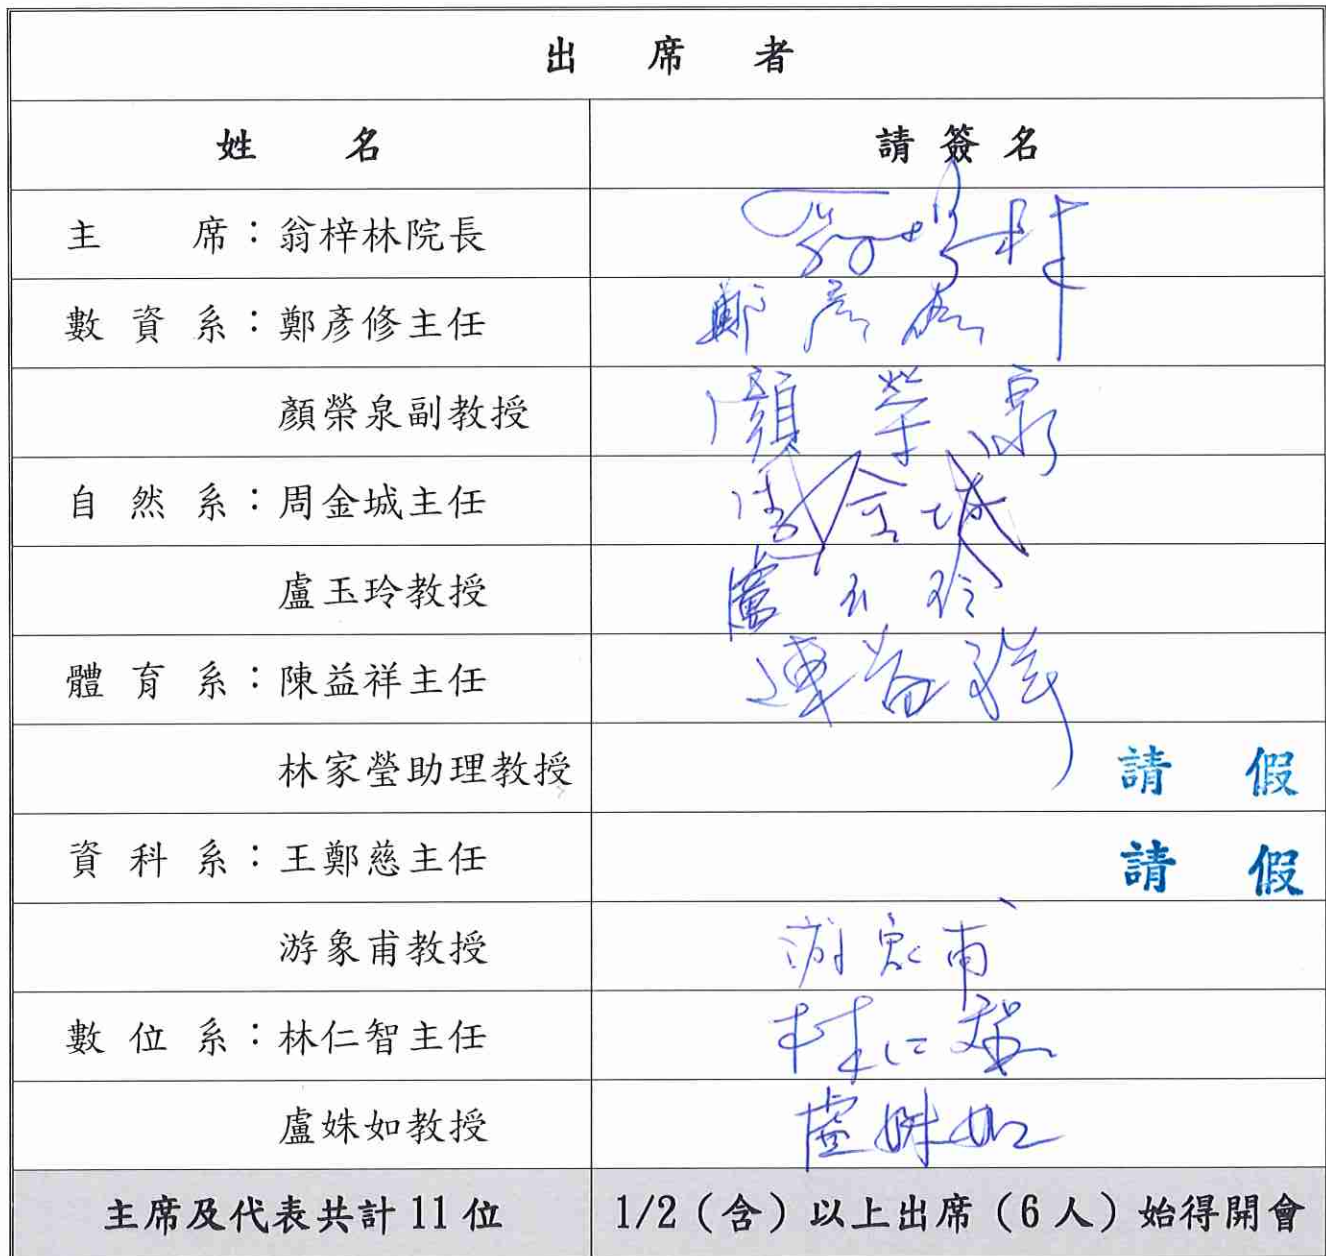 出 席 者
姓 名 請簽名
主 席：翁梓林院長
數 資 系：鄭彥修主任 鄭彥修
顏榮泉副教授 顏榮泉
自 然 系：周金城主任 周金城
盧玉玲教授 盧玉玲
體 育 系：陳益祥主任 陳益祥
林家瑩助理教授 請 假
資 科 系：王鄭慈主任 請 假
游象甫教授 游象甫
數 位 系：林仁智主任 林仁智
盧姝如教授 盧姝如
主席及代表共計 11 位 1/2（含）以上出席（6 人）始得開會